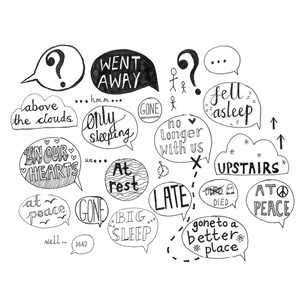 ?
WENT
AWAY
?
...
above
the clouds
...hmm
GONE
fell
asleep
Only
sleeping
no
longer
with us
IN OUR
HEARTS
un...
At
rest
UPSTAIRS
at
peace
GONE
BIG
SLEEP
LATE
DIED
AT
PEACE
gone to a
better
place
well..
DEAD